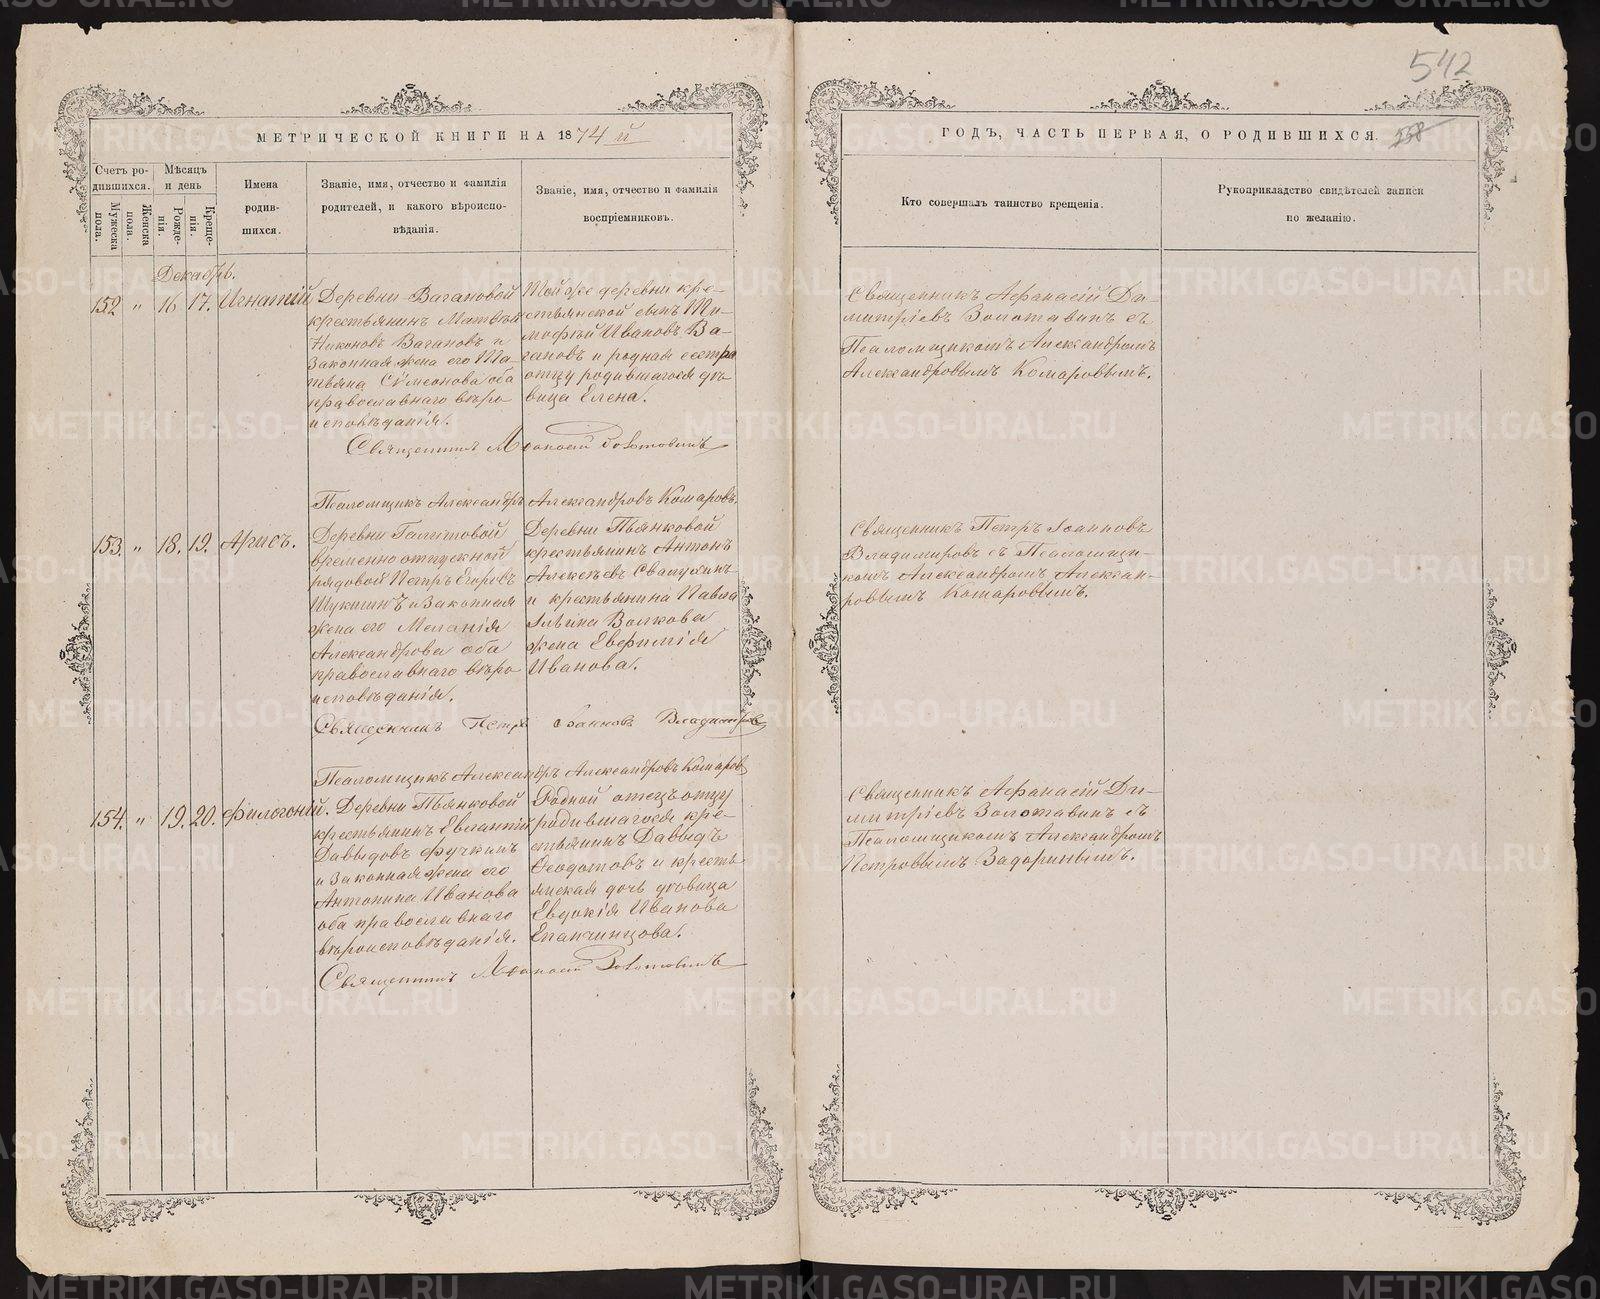 542
558
МЕТРИЧЕСКОЙ КНИГИ НА 1874 й
ГОДЪ, ЧАСТЬ ПЕРВАЯ, О РОДИВШИХСЯ.
Счетъ ро-
дившихся.
Мужеска пола.
Женска пола.
Мѣсяцъ
и день
Рожде-
нія.
Креще-
нія.
Имена
родив-
шихся.
Званіе, имя, отчество и фамилія
родителей, и какого вѣроиспо-
вѣданія.
Званіе, имя, отчество и фамилія
воспріемниковъ.
Кто совершалъ таинство крещенія.
Рукоприкладство свидѣтелей записи
по желанію.
Декабрь.
152 " 16 17. Игнатій
Деревни Вагановой
крестьянинъ Матвѣй
Никоновъ Вагановъ и
законная жена его Та-
тьяна Симеонова оба
православнаго вѣро-
исповѣданія.
Той же деревни кре-
стьянской сынъ Ти-
мофѣй Ивановъ Ва-
гановъ и родная сестра
отцу родившагося дѣ-
вица Елена.
Священникъ Афанасій Ди-
митріевъ Золотавинъ съ
Псаломщикомъ Александромъ
Александровымъ Комаровымъ.
Священникъ Афанасій Золотавинъ
Псаломщикъ Александръ Александровъ Комаровъ.
153. " 18. 19. Арисъ.
Деревни
временно отпускной
рядовой Петръ Егоровъ
Шукшинъ и законная
жена его Меланія
Александрова оба
православнаго вѣро-
исповѣданія.
Деревни Пьянковой
крестьянинъ Антонъ
Алексѣевъ
и крестьянина Павла
Ильина Волкова
жена Евфимія
Иванова.
Священникъ Петръ Іоанновъ
Владимировъ съ Псаломщи-
комъ Александромъ Алексан-
ровымъ Комаровымъ.
Священникъ Петръ Іоанновъ Владимировъ
Псаломщикъ Александръ Александровъ Комаровъ
154. " 19. 20. Филогоній.
Деревни Пьянковой
крестьянинъ Евлампій
Давыдовъ Фучкинъ
и законная жена его
Антонина Иванова
оба православнаго
вѣроисповѣданія.
Родной отецъ отцу
родившагося кре-
стьянинъ Давыдъ
Ѳеодотовъ и кресть-
янская дочь дѣвица
Евдокія Иванова
Епанчинцова.
Священникъ Афанасій Ди-
митріевъ Золотавинъ съ
Псаломщикомъ Александромъ
Петровымъ Задоринымъ.
Священникъ Афанасій Золотавинъ
METRIKI.GASO-URAL.RU